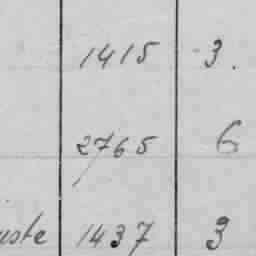 1415 3.
2765 6
uste 1437 3